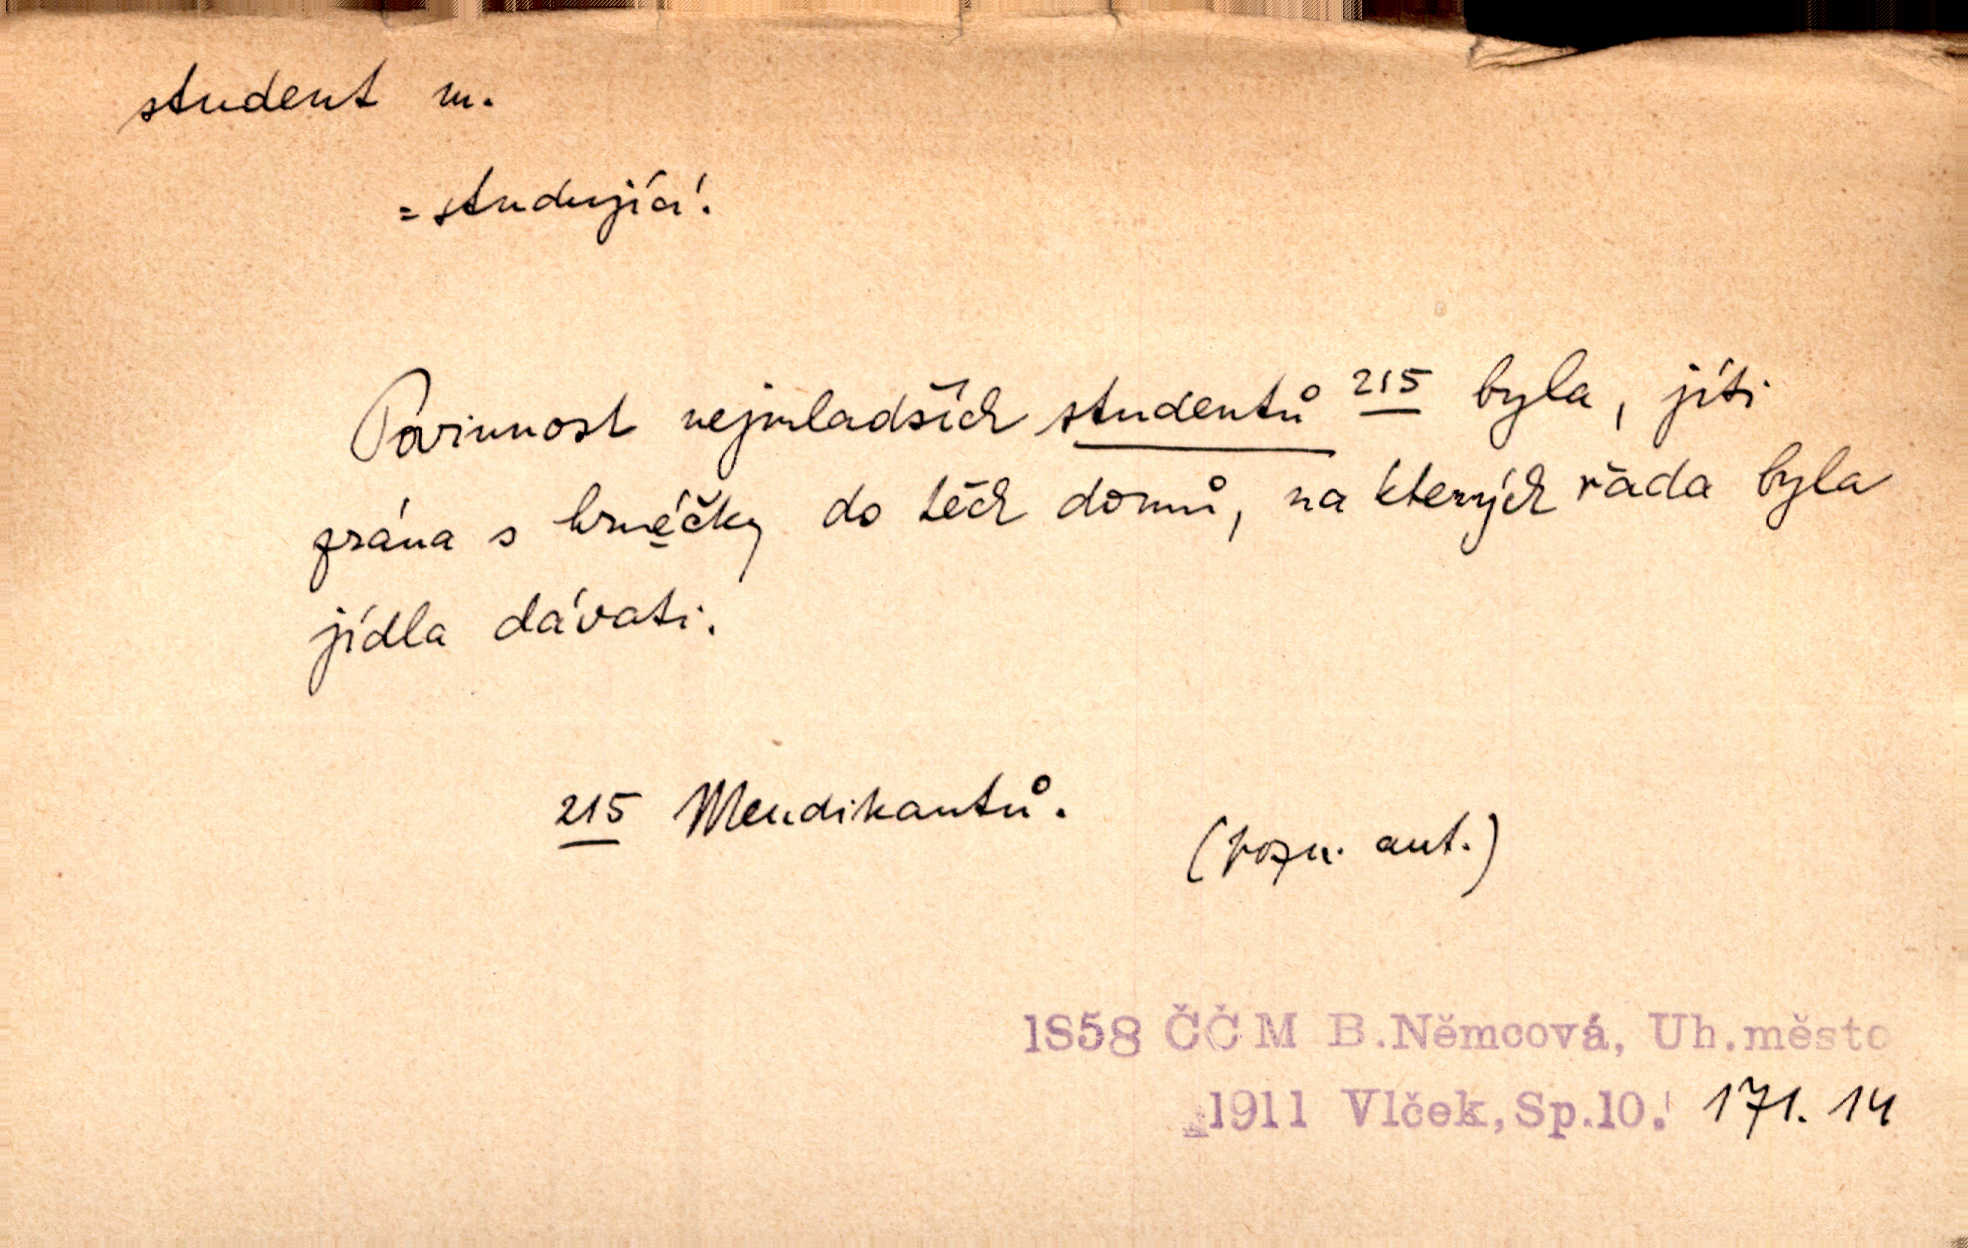 student m.
= studující.
Povinnost nejmladších studentů 215 byla, jíti
zrána s hrnéčky do těch domů, na kterých řada byla
jídla dávati.
215 Mendikantů.
(pozn. aut.)
1858 ČČM B.Němcová, Uh.město
1911 Vlček, Sp.10. 171. 14